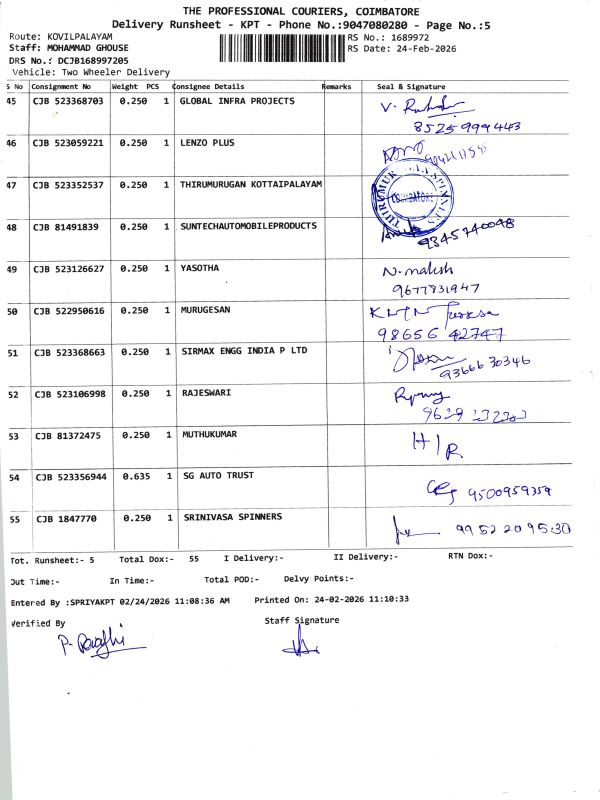 THE PROFESSIONAL COURIERS, COIMBATORE
Delivery Runsheet - KPT - Phone No.:9047080280 - Page No.:5
Route: KOVILPALAYAM
RS No.: 1689972
Staff: MOHAMMAD GHOUSE
RS Date: 24-Feb-2026
DRS No.: DCJB168997205
Vehicle: Two Wheeler Delivery
S No Consignment No Weight PCS Consignee Details Remarks Seal & Signature
45 CJB 523368703 0.250 1 GLOBAL INFRA PROJECTS
8525999443
46 CJB 523059221 0.250 1 LENZO PLUS
47 CJB 523352537 0.250 1 THIRUMURUGAN KOTTAIPALAYAM
COIMBATORE
48 CJB 81491839 0.250 1 SUNTECHAUTOMOBILEPRODUCTS
9345740048
49 CJB 523126627 0.250 1 YASOTHA N. malesh
9677831947
50 CJB 522950616 0.250 1 MURUGESAN
98656 42747
51 CJB 523368663 0.250 1 SIRMAX ENGG INDIA P LTD
9366630346
52 CJB 523106998 0.250 1 RAJESWARI
53 CJB 81372475 0.250 1 MUTHUKUMAR H/R
54 CJB 523356944 0.635 1 SG AUTO TRUST
9500959359
55 CJB 1847770 0.250 1 SRINIVASA SPINNERS
9952209530
Tot. Runsheet:- 5 Total Dox:- 55 I Delivery:- II Delivery:- RTN Dox:-
Out Time:- In Time:- Total POD:- Delvy Points:-
Entered By :SPRIYAKPT 02/24/2026 11:08:36 AM Printed On: 24-02-2026 11:10:33
Verified By Staff Signature